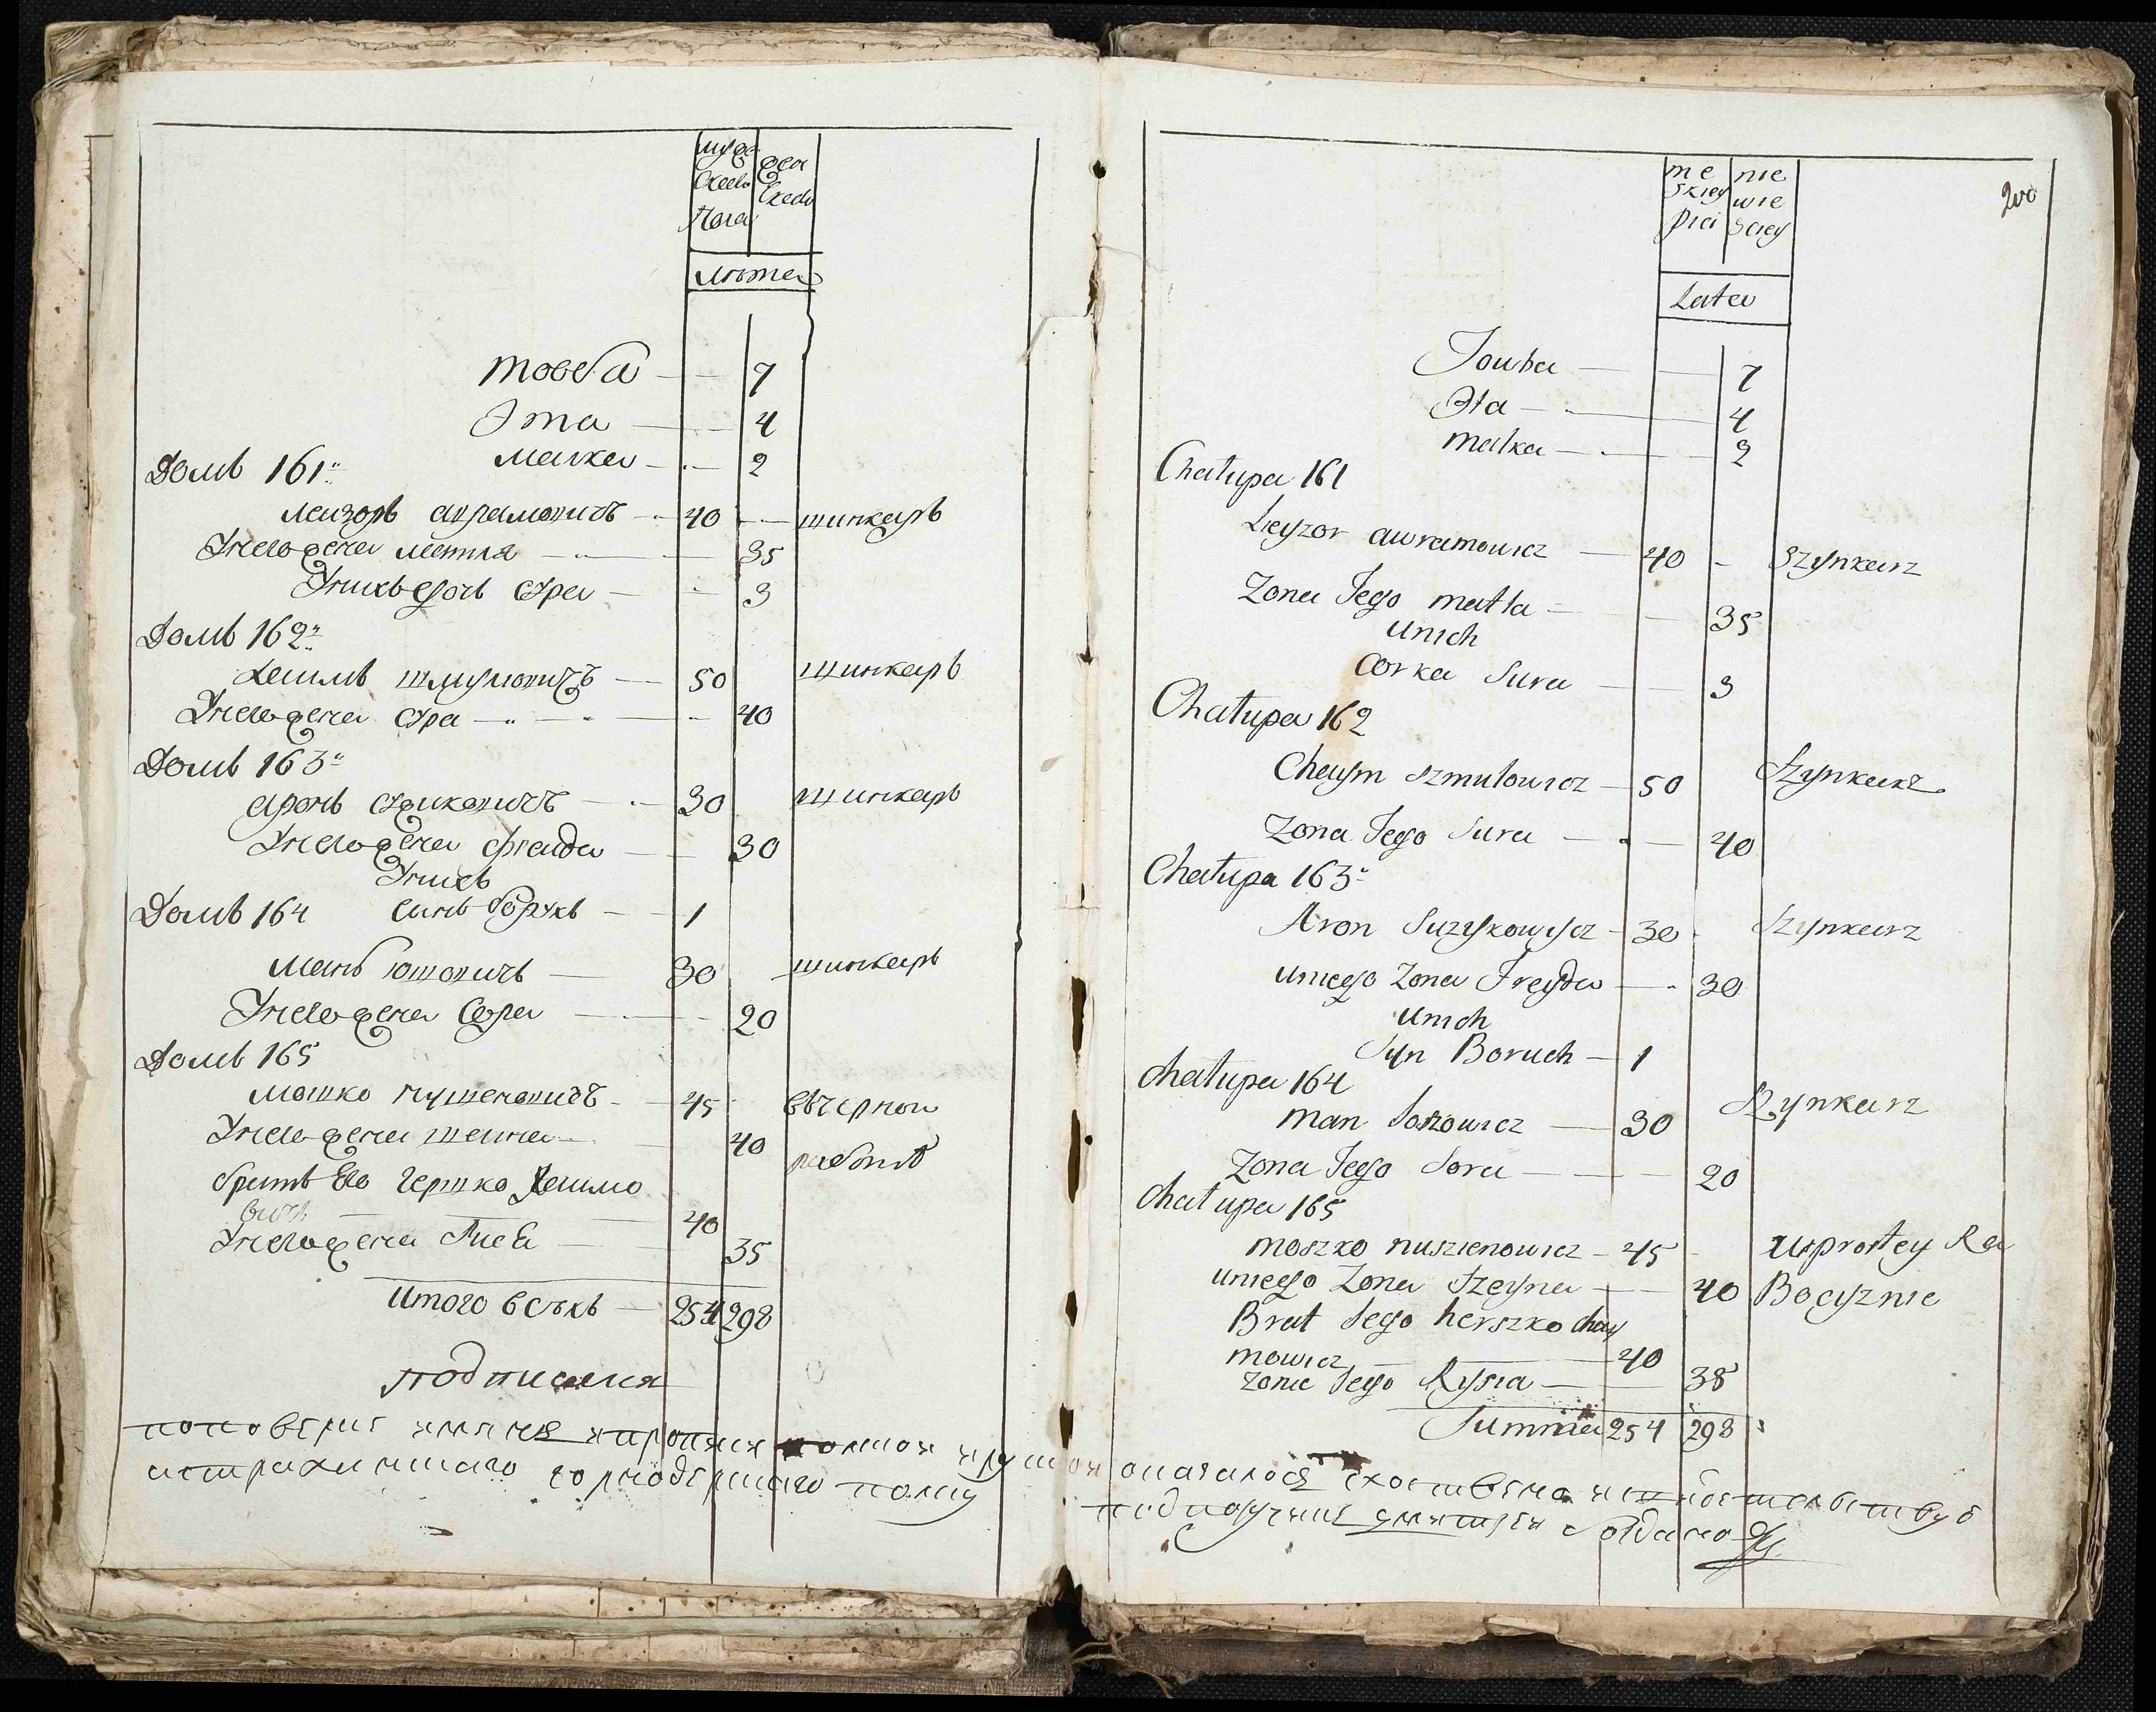 муже
ска
женска
пола
лѣта
товба — 7
Эта — 4
малка — 2
Домъ 161
лейзоръ аврамовичъ — 40 — шинкаръ
Унегожена матля — 35
Унихъ дочь сура — 3
Домъ 162
хаимъ шмуловичъ — 50 шинкаръ
Унегожена сура — 40
Домъ 163
аронъ сузиковичъ — 30 шинкаръ
Унегожена фрейда — 30
Унихъ
Домъ 164 Синъ борухъ — 1
манъ — 30 шинкаръ
Унегожена Сора — 20
Домъ 165
мошко нушеновичъ — 45 въчерной
Унегожена шейна — 40 работѣ
братъ Его гершко хаимо
вичъ — 40
Унегожена — 35
Итого всѣхъ — 254 298
подписался
поповерке
астраханскаго полку
200
me nie
skiey wie
płci sciey
Lata
Touba — 7
Eta — 4
malka — 2
Chałupa 161
Leyzor awramowicz — 40 - Szynkarz
Zona Jego matla — 35
unich
Corka Sura — 3
Chałupa 162
Chaym Szmulowicz — 50 Szynkarz
Zona Jego Sura — 40
Chałupa 163
Aron Suzykowycz — 30 - Szynkarz
uniego Zona Freyda — 30
unich
Syn Boruch — 1
chałupa 164
man — 30 Szynkarz
Zona Jego Sora — 20
chałupa 165
moszko nuszenowicz — 45 - wprostey Ra
uniego Zona Szeyna — 40 Bocyznie
Brat Jego herszko chay
mowicz — 40
zona Jego Rysia — 38
Summa 254 298
оказалося сходственно